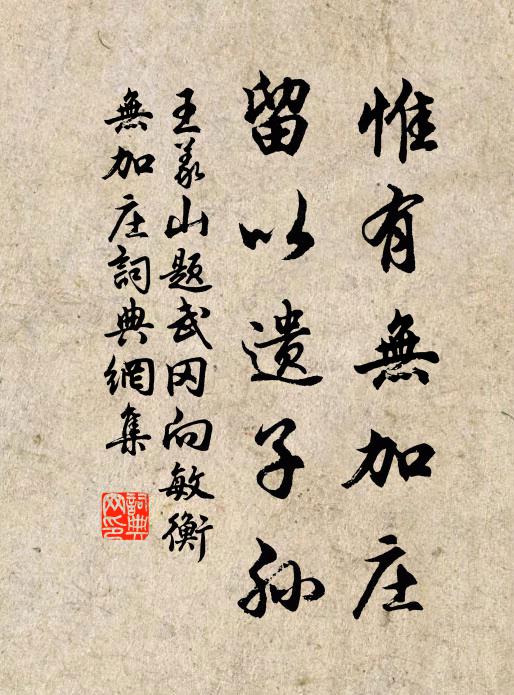 惟有無加庄
留以遗子孙
王义山题武冈向敏衡
無加庄詞典網集
詞典網印